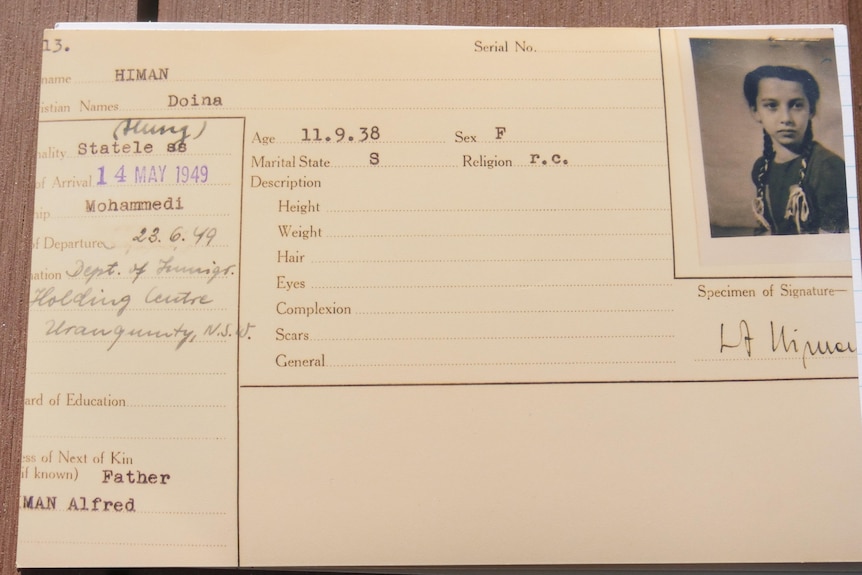 13.
Serial No.
name HIMAN
istian Names Doina
(Hung)
nality Statele ss
of Arrival 14 MAY 1949
hip Mohammedi
of Departure 23.6.49
nation Dept. of Immigr.
Holding Centre
Uranquinty, N.S.W.
ard of Education
ess of Next of Kin
if known) Father
MAN Alfred
Age 11.9.38 Sex F
Marital State S Religion r.c.
Description
Height
Weight
Hair
Eyes
Complexion
Scars
General
Specimen of Signature—
Himan